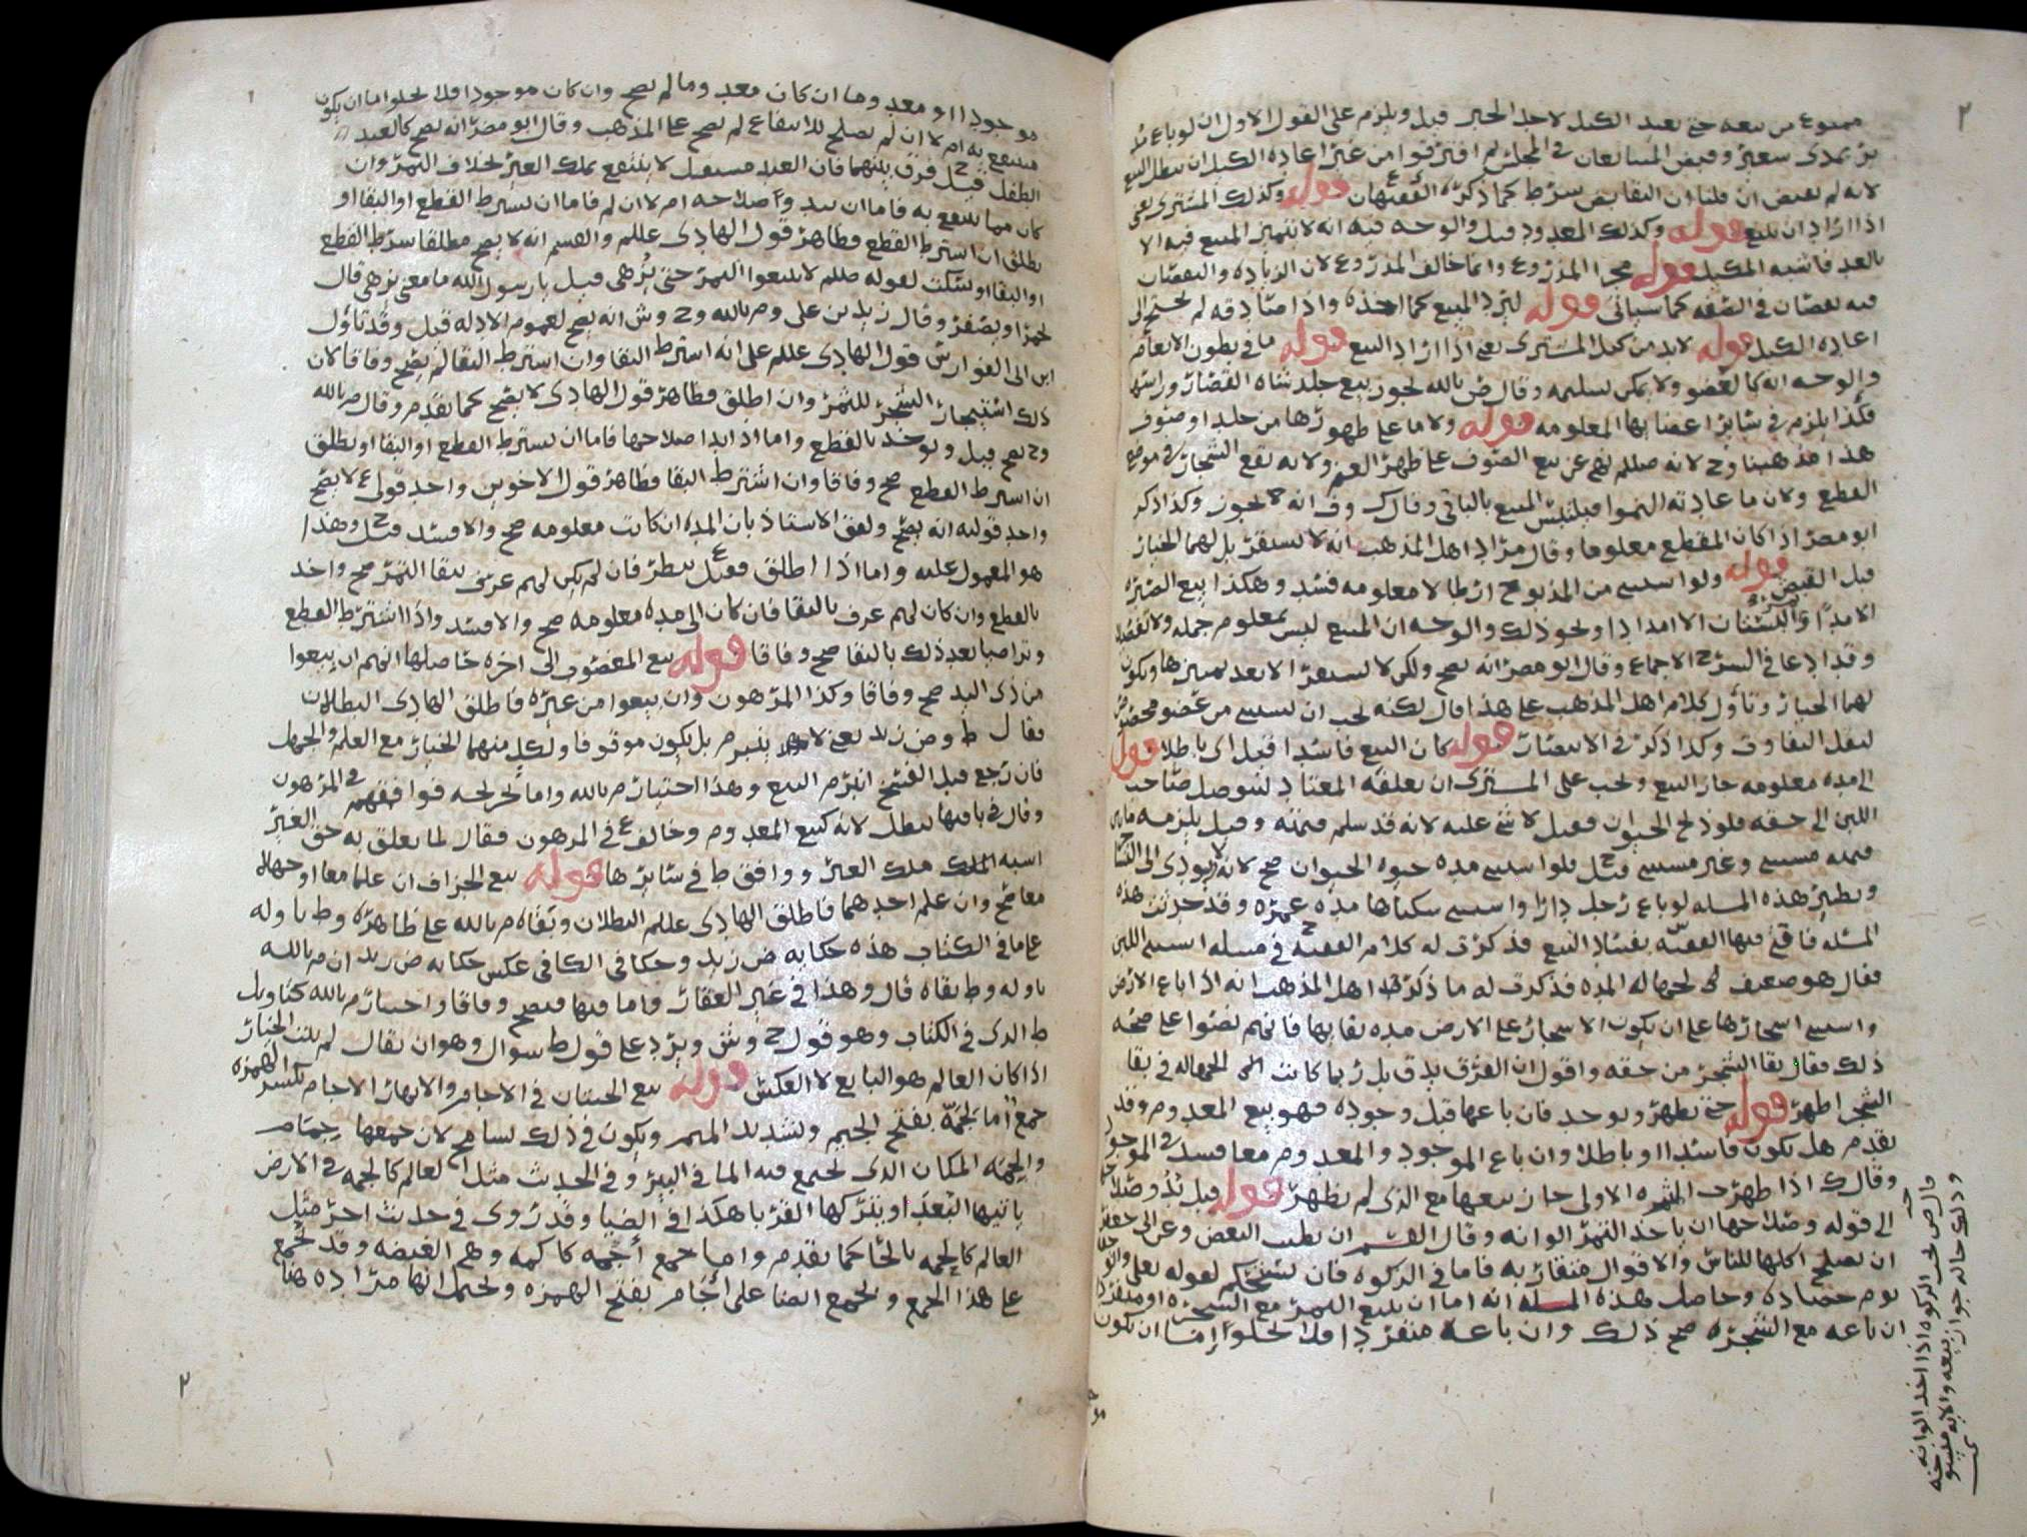 ممنوع من بيعه حتى يعيد الكيل لاجل الخبر قيل ويلزم على القول الاول ان لو باع مد
بر بمدى شعير وقبض المتبايعان في المجلس ثم افترقوا من غير اعادة الكيل ان يبطل البيع
لانه لم يقبض ان قلنا ان التقابض شرط كما ذكره الفقيهان قوله وكذلك المشتري يعني
اذا اراد ان يبيع قوله وكذلك المعدود قيل والوجه فيه انه لا يتميز المبيع فيه الا
بالعد فاشبه المكيل قوله مجرا المذروع وانما خالف المذروع لان الزيادة والنقصان
فيه نقصان في الصفه كما سياتي قوله ليرد المبيع كما اخذه واذا صادقه لم يحتج الى
اعادة الكيل قوله لابد من كيل المشتري يعني اذا اراد البيع قوله ما في بطون الانعام
والوجه انه كالعضو ولا يمكن تسليمه وقال ض بالله يجوز بيع جلد شاة القصار وراسها
فكذا يلزم في سائر اعضائها المعلومه قوله ولا ما على ظهورها من جلد او صوف
هذا مذهبنا وح لانه صللم نهى عن بيع الصوف على ظهر الغنم ولانه يقع الشجار في موضع
القطع ولان ما عادته النموا فيلتبس المبيع بالباقي وقال ك وف انه يجوز وكذا ذكر
ابو مضر اذا كان المقطع معلوما وقال مراد اهل المذهب انه لا يستقر بل لهما الخيار
قبل القبض قوله ولو استثنى من المذبوح ارطالا معلومه فسد وهكذا بيع الصبره
الا مدا والبستان الا امدادا ونحو ذلك والوجه ان المبيع ليس بمعلوم جمله ولا تفصيلا
وقد ادعا في الشرح الاجماع وقال ابو مضر انه يصح ولكن لا يستقر الا بعد تمييزها ويكون
لهما الخيار وتاول كلام اهل المذهب على هذا قال لكنه يجب ان يستثنى من عضو مخصوص
ليقل التفاوت وكذا ذكر في الانتصار قوله كان البيع فاسدا قيل اي باطلا قوله
الى مده معلومه جاز البيع ويجب على المشتري ان يعلفه المعتاد ليتوصل صاحب
اللبن الى حقه فلو ذبح الحيوان فقيل لا شي عليه لانه قد سلم قيمته وقيل يلزمه ما بين
قيمته مستثنى وغير مستثنى قيل فلو استثنى مده حيوه الحيوان صح لانه لا يودي الى التشاجر
ونظير هذه المسله لو باع رجل دارا واستثنى سكناها مده عمره وقد حدثت هذه
المسله فافتى فيها الفقيه بفساد البيع فذكرت له كلام الفقيه في مسله استثنى اللبن
فقال هو ضعيف لجهاله المده فذكرت له ما ذكره اهل المذهب انه اذا باع الارض
واستثنى اشجارها على ان يكون الاشجار على الارض مده بقايها فانهم نصوا على صحه
ذلك فقال بقا الشجر من حقه واقول ان الفرق يدق بل ربما كانت الجهاله في بقا
الشجر اظهر قوله حتى يظهر ويوجد فان باعها قبل وجوده فهو بيع المعدوم وقد
تقدم هل يكون فاسدا او باطلا وان باع الموجود والمعدوم معا فسد في الموجود
وقال ك اذا ظهرت الثمره الاولى جاز بيعها مع الذي لم يظهر قوله قبل بدو صلا
الى قوله وصلاحها ان ياخذ الثمر الوانه وقال القسم ان يطيب البعض وعن الى جعفر
ان يصلح اكلها للناس والاقوال متقاربه فاما في الزكوه فان يستحكم لقوله تعلى واتوا حقه
يوم حصاده وحاصل هذه المسله انه اما ان يبيع الثمر مع الشجره او منفردا
ان باعه مع الشجره صح ذلك وان باعه منفردا فلا يخلو اما ان يكون
قال ض يجب الزكوه اذا اخذ الوانه
وذلك حاله جواز بيعه والايه منسوخه
موجودا او معدوما ان كان معدوما لم يصح وان كان موجودا فلا يخلوا اما ان يكون
منتفع به ام لا ان لم يصلح للانتفاع لم يصح على المذهب وقال ابو مضر انه يصح كالعبد
الطفل قيل فرق بينهما فان العبد مستقبل لا ينتفع بملك الغير بخلاف الثمر وان
كان مما ينتفع به فاما ان يبدو صلاحه ام لا ان لم فاما ان يشرط القطع او البقا او
يطلق ان اشترط القطع فظاهر قول الهادى عللم والقسم انه لا يصح مطلقا شرط القطع
او البقا او سكت لقوله صللم لا تبيعوا الثمر حتى يزهى قيل يا رسول الله ما معنى يزهى قال
يحمر او يصفر وقال زيد بن على وم بالله وح وش انه يصح لعموم الادله قيل وقد تاول
ابن ابى الفوارس قول الهادى عللم على انه اشترط البقا وان اشترط البقا لم يصح وفاقا لان
ذلك استيجار الشجر للثمر وان اطلق فظاهر قول الهادى لا يصح كما تقدم وقال م بالله
وح يصح قيل ويوخذ بالقطع واما اذا بدا صلاحها فاما ان يشترط القطع او البقا او يطلق
ان اشترط القطع صح وفاقا وان اشترط البقا فظاهر قول الاخوين واحد قولى ع لا يصح
واحد قوليه انه يصح ولفق الاستاذ بان المده ان كانت معلومه صح والا فسد قيل وهذا
هو المعمول عليه واما اذا اطلق فقيل ينظر فان لم يكن لهم عرف ببقا الثمر صح واخذ
بالقطع وان كان لهم عرف بالبقا فان كان الى مده معلومه صح والا فسد واذا اشترط القطع
وتراضيا بعد ذلك بالبقا صح وفاقا قوله بيع المغصوب الى اخره حاصلها انهم ان يبيعوا
من ذى اليد صح وفاقا وكذا المرهون وان بيعوا من غيره فاطلق الهادى البطلان
فقال ط وض زيد يعنى لا ينبرم بل يكون موقوفا ولكل منهما الخيار مع العلم والجهل
فان رجع قبل الفسخ انبرم البيع وهذا اختيار م بالله واما فوافقهم في المرهون
وقال في باقيها يبطل لانه كبيع المعدوم وخالف ع في المرهون فقال لما تعلق به حق الغير
اشبه الملك ملك الغير ووافق ط في سائرها قوله بيع الجزاف ان علما معا او جهلا
معا صح وان علم احدهما فاطلق الهادى عللم البطلان وبقاه م بالله على ظاهره وط تاوله
على ما في الكتاب هذه حكايه ض زيد وحكا في الكافى عكس حكايه ض زيد ان م بالله
تاوله وط بقاه قال وهذا في غير العقار واما فيها فيصح وفاقا واختار م بالله كتاويل
ط الذى في الكتاب وهو قول ح وش ويرد على قول ط سوال وهو ان يقال لم يثبت الخيار
اذا كان العالم هو البايع لا العكس قوله بيع الحيتان في الاجام والانهار الاجام بكسر الهمزه
جمع اما لجمه بفتح الجيم وتشديد الميم ويكون في ذلك تسامح لان جمعها جمام
والجمه المكان الذى يجتمع فيه الما في البير وفي الحديث مثل العالم كالجمه في الارض
ياتيها البعدا ويتركها القربا هكذا في الضيا وقد روى في حديث اخر مثل
العالم كالحمه بالحا كما تقدم واما جمع اجمه كاكمه وهي الغيضه وقد تجمع
على هذا الجمع ويجمع ايضا على اجام بفتح الهمزه ويحتمل انها مراده هنا